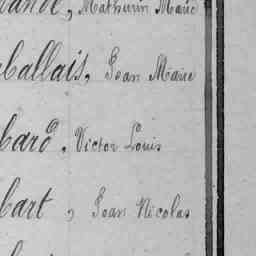 Mathurin Marie
Callais, Jean Marie
Card, Victor Louis
Cart, Jean Nicolas